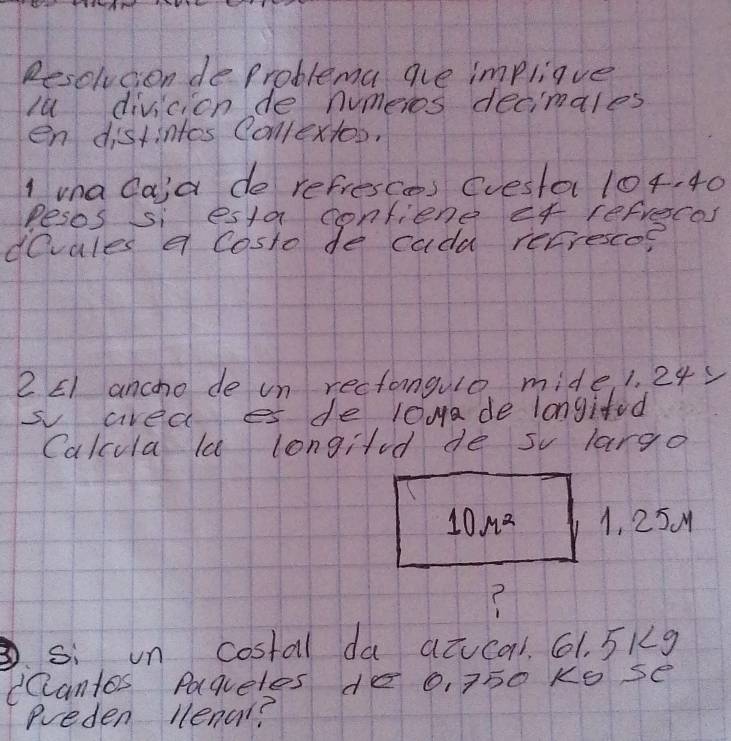 Resolucion de Problema que implique
la divicion de numeros decimales
en distintos Contextos.
1 una Caja de refrescos Cuesta 104.40
Pesos si esta contiene 24 refrescos
¿Cuales a Costo de cada refresco?
2 El ancho de un rectangulo mide 1.24 y
su area es de 10 de longitud
Calcula la longitud de su largo
10 M² 1.25 M
?
3 Si un costal da azucar. 61.5 Kg
¿Cuantos Paquetes de 0.750 Kg se
Pueden llenar?